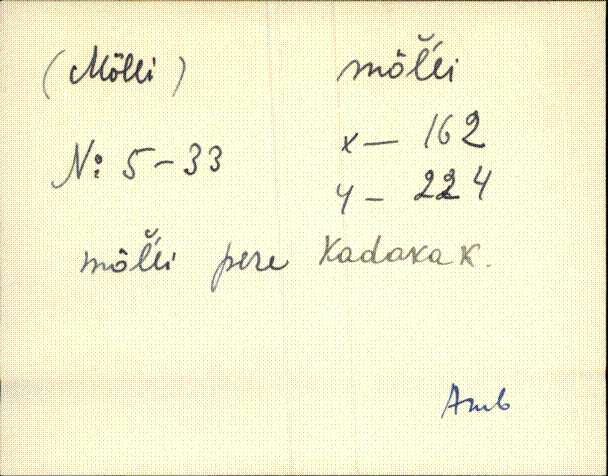 (Mölli) mõl̆l̀i
No: 5-33 x — 162
y — 224
mõl̆l̀i pere Kadaka k.
Amb